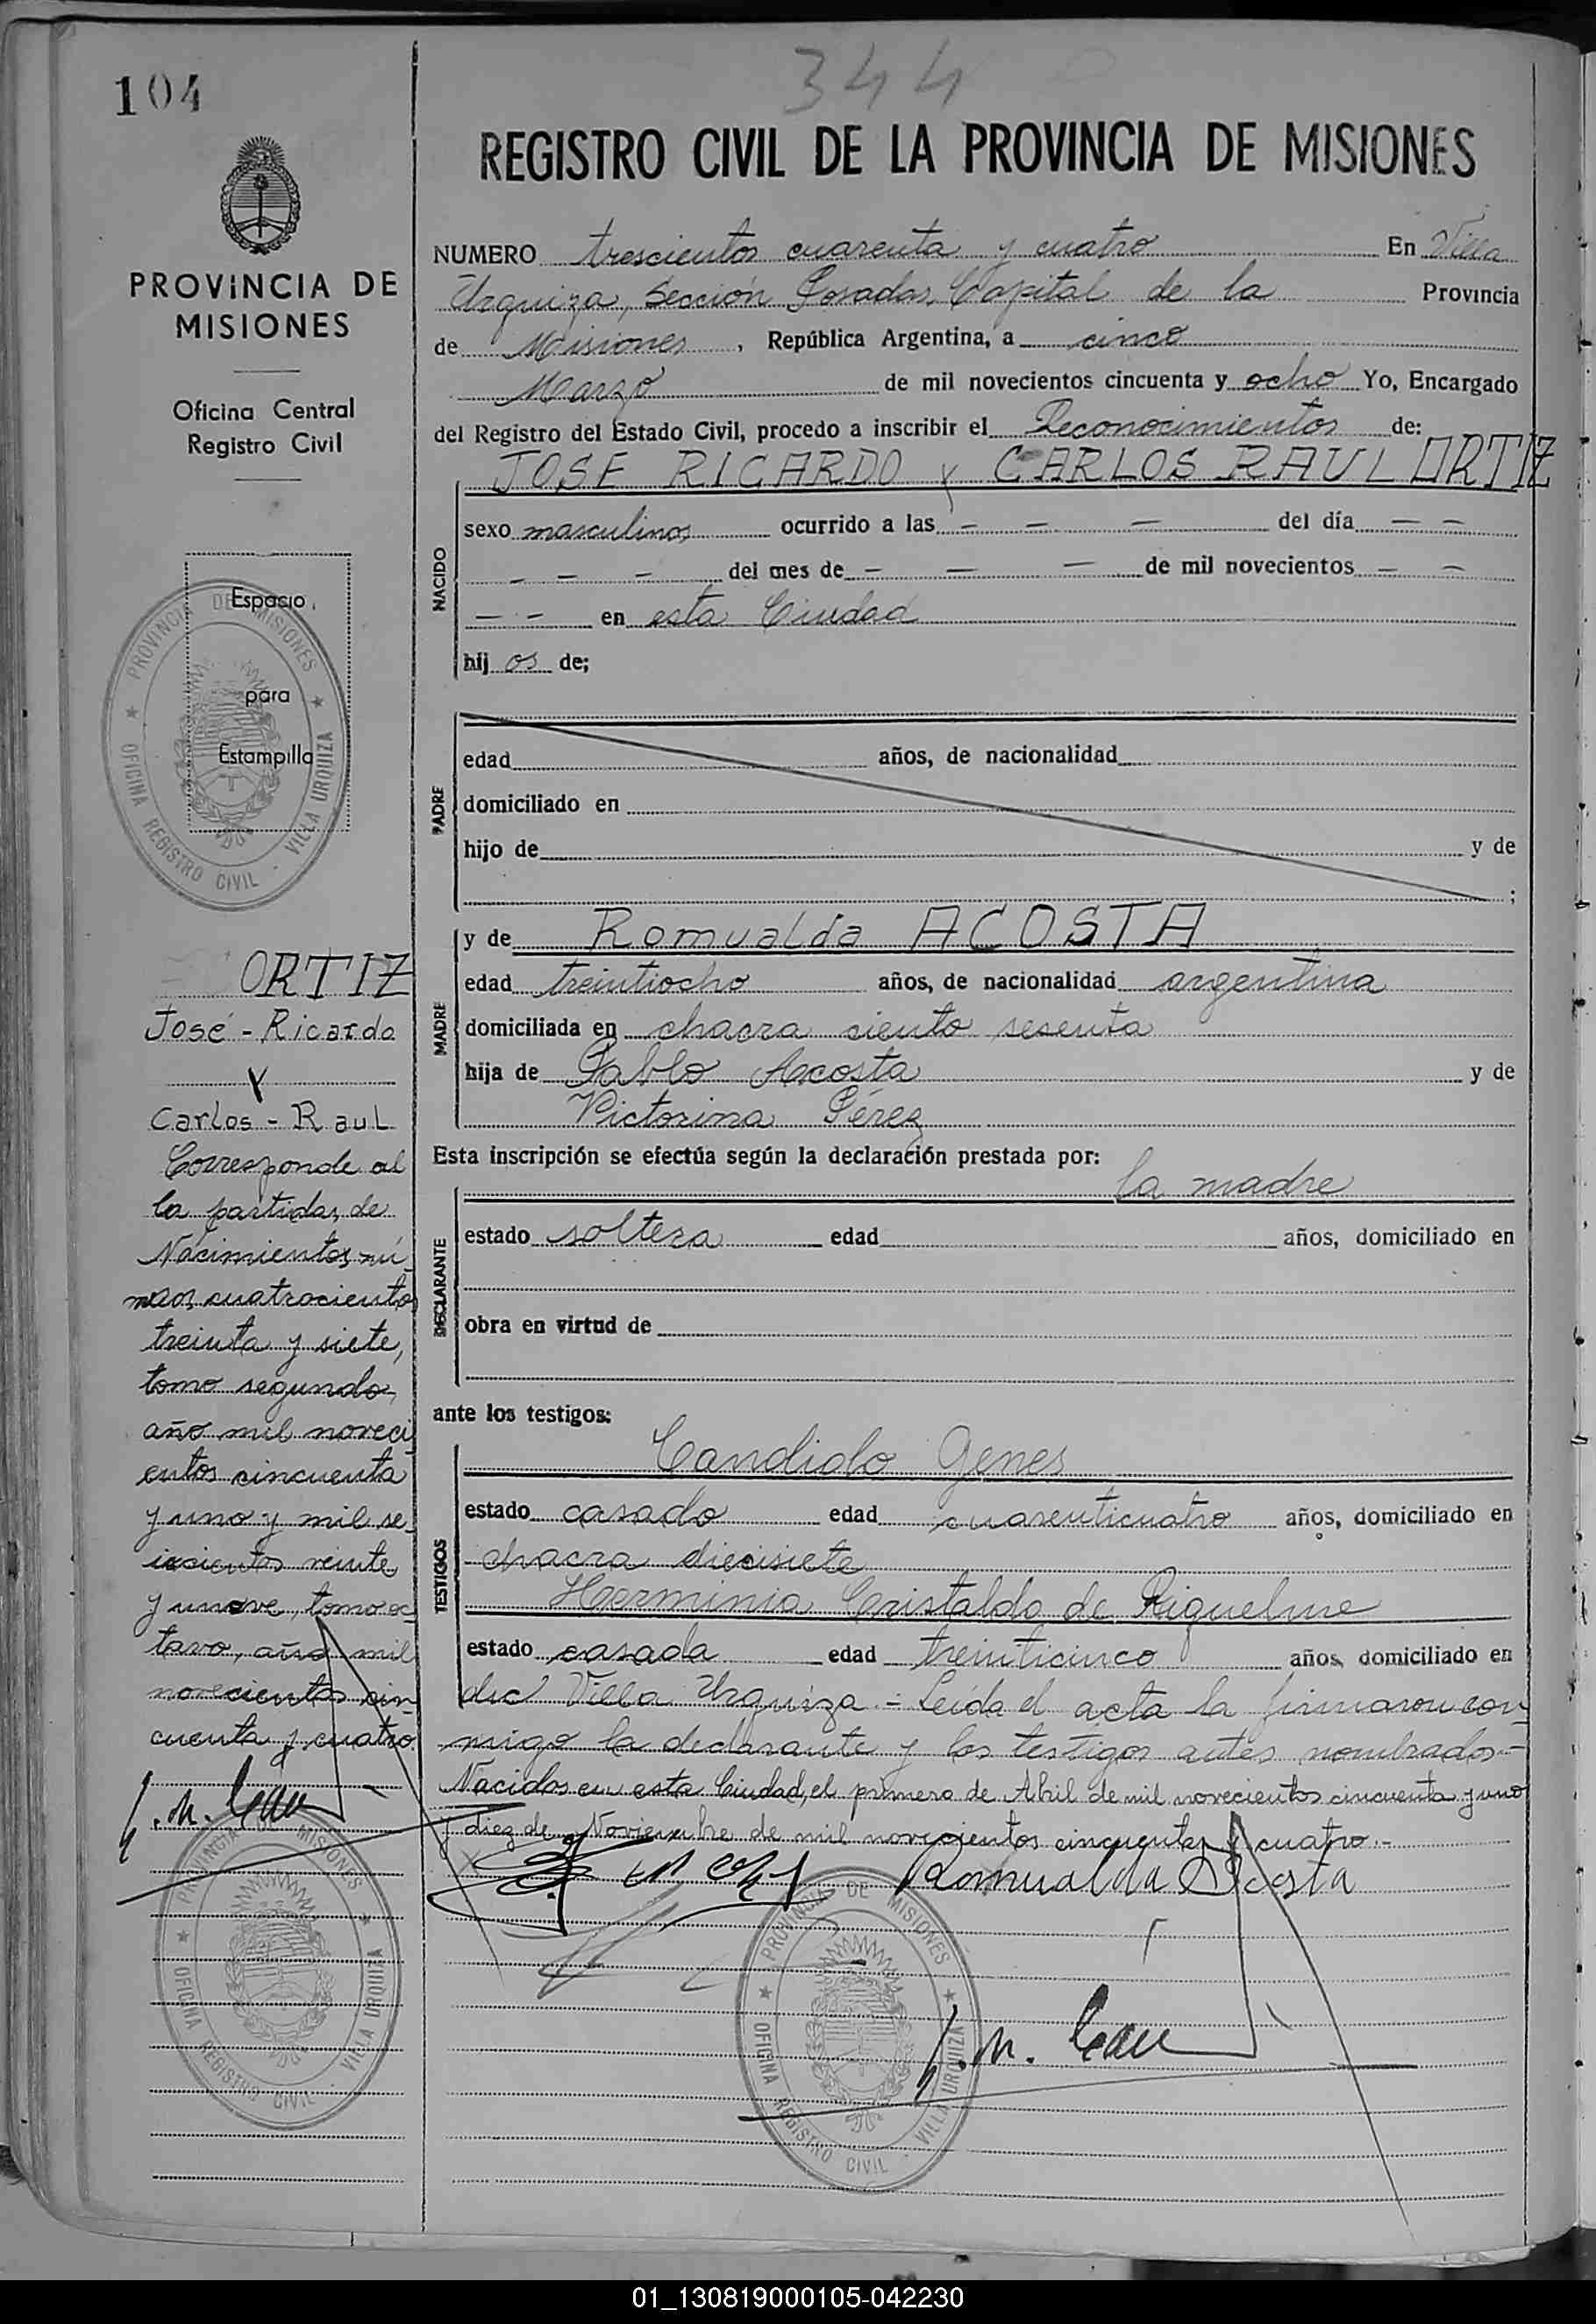 104
344
PROVINCIA DE
MISIONES
Oficina Central
Registro Civil
Espacio
para
Estampilla
PROVINCIA DE MISIONES
OFICINA REGISTRO CIVIL - VILLA URQUIZA
ORTIZ
José - Ricardo
y
Carlos - Raul
Corresponde al
la partidas de
Nacimientos nú
meros cuatrocientos
treinta y siete,
tomo segundo,
año mil noveci
entos cincuenta
y uno y mil se
iscientos veinte
y nueve, tomo oc
tavo, año mil
novecientos cin
cuenta y cuatro.
PROVINCIA DE MISIONES
OFICINA REGISTRO CIVIL - VILLA URQUIZA
REGISTRO CIVIL DE LA PROVINCIA DE MISIONES
NUMERO trescientos cuarenta y cuatro En Villa
Urquiza, Sección Posadas, Capital de la Provincia
de Misiones, República Argentina, a cinco
Marzo de mil novecientos cincuenta y ocho Yo, Encargado
del Registro del Estado Civil, procedo a inscribir el Reconocimientos de:
JOSE RICARDO y CARLOS RAUL ORTIZ
NACIDO
sexo masculinos ocurrido a las - - - del día - -
- - - del mes de - - - de mil novecientos - -
- - en esta Ciudad
hij os de;
PADRE
edad años, de nacionalidad
domiciliado en
hijo de y de
;
MADRE
y de Romualda ACOSTA
edad treintiocho años, de nacionalidad argentina
domiciliada en chacra ciento sesenta
hija de Pablo Acosta y de
Victorina Pérez
Esta inscripción se efectúa según la declaración prestada por:
la madre
DECLARANTE
estado soltera edad años, domiciliado en
obra en virtud de
ante los testigos:
TESTIGOS
Candido Genes
estado casado edad cuarenticuatro años, domiciliado en
chacra diecisiete
Herminia Cristaldo de Riquelme
estado casada edad treinticinco años, domiciliado en
Villa Urquiza.- Leída el acta la firmaron con
migo la declarante y los testigos antes nombrados.-
Nacidos en esta Ciudad, el primero de Abril de mil novecientos cincuenta y uno
y diez de Noviembre de mil novecientos cincuenta y cuatro.-
Romualda Acosta
PROVINCIA DE MISIONES
OFICINA REGISTRO CIVIL - VILLA URQUIZA
01_130819000105-042230